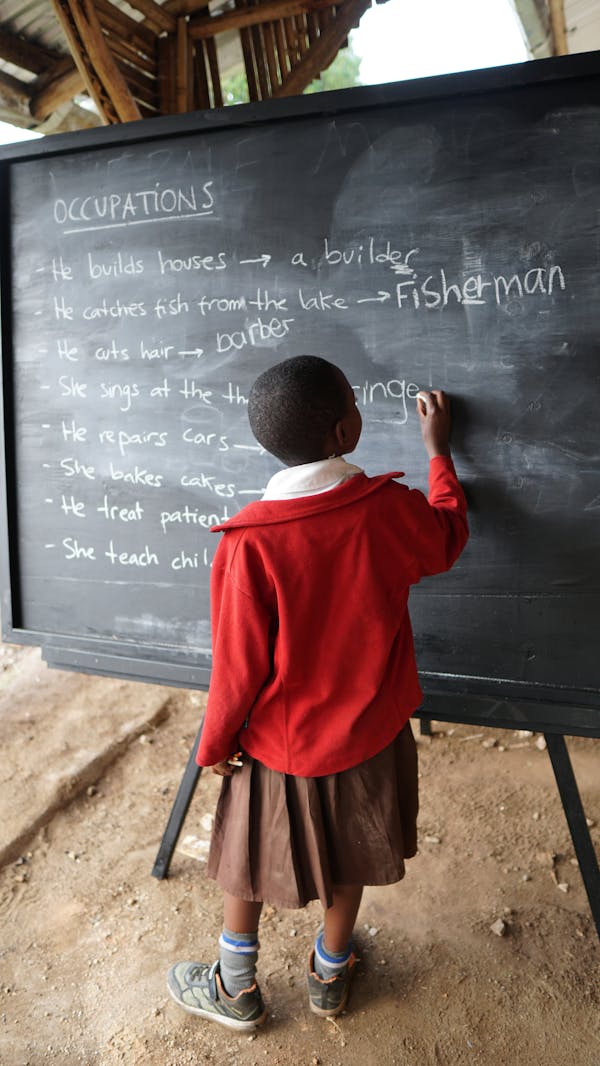 OCCUPATIONS
- He builds houses → a builder
- He catches fish from the lake → Fisherman
- He cuts hair → barber
- She sings at the th inge
- He repairs cars →
- She bakes cakes →
- He treat patient
- She teach chil